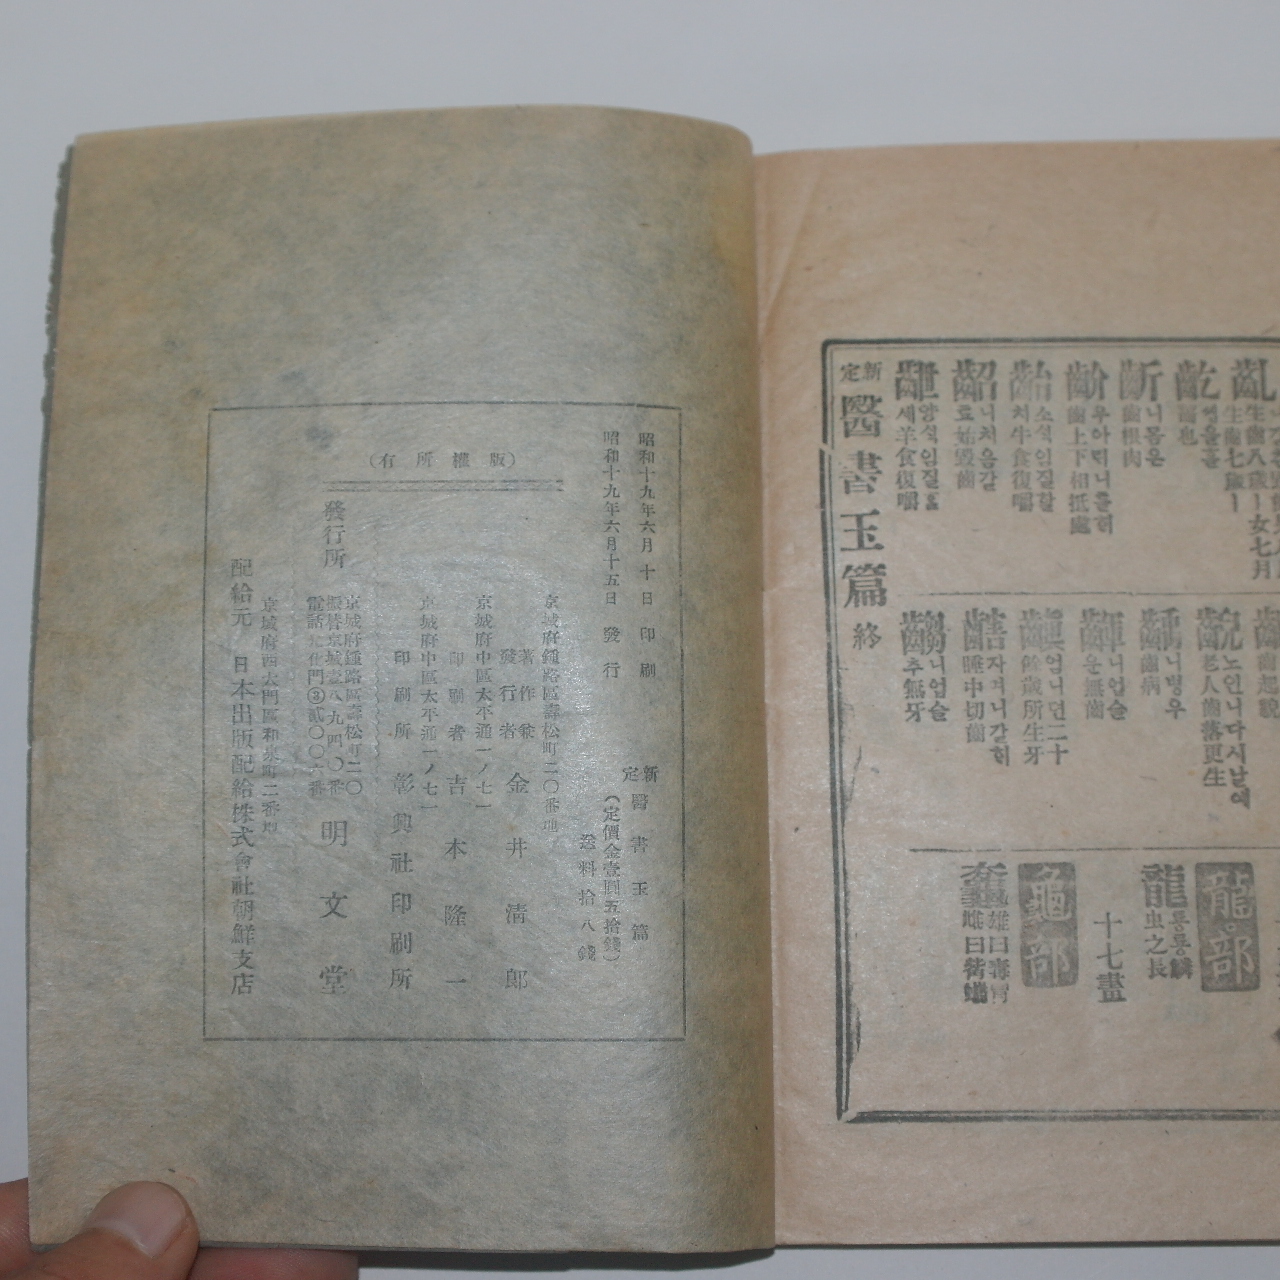 齔
齕
齗
齘
니몸온
齒根肉
우아력니를히
齒上下相抵處
齝
소석임질할
치牛食復嚼
齠
니처음갈
齒
齥
양석임질홀
세羊食復嚼
齯
노인니다시날예
老人齒落更生
齲
니병우
齒病
니업슬
운無齒
齻
엄니뎐二十
餘歲所生牙
니업슬
추無牙
龍部
龍
虫之長
十七畫
龜部
新定 醫書玉篇 終
昭和十九年六月十日印刷
昭和十九年六月十五日發行
新定 醫書玉篇
(定價金壹圓五拾錢)
送料拾八錢
(版權所有)
京城府鍾路區壽松町二〇番地
著作兼發行者 金井清郎
京城府中區太平通一ノ七一
印刷者 吉本隆一
京城府中區太平通一ノ七一
印刷所 彰興社印刷所
發行所
京城府鍾路區壽松町二〇
振替京城壹八九四〇番
電話光化門③貳〇〇六番
明文堂
京城府西大門區和泉町二番地
配給元 日本出版配給株式會社朝鮮支店